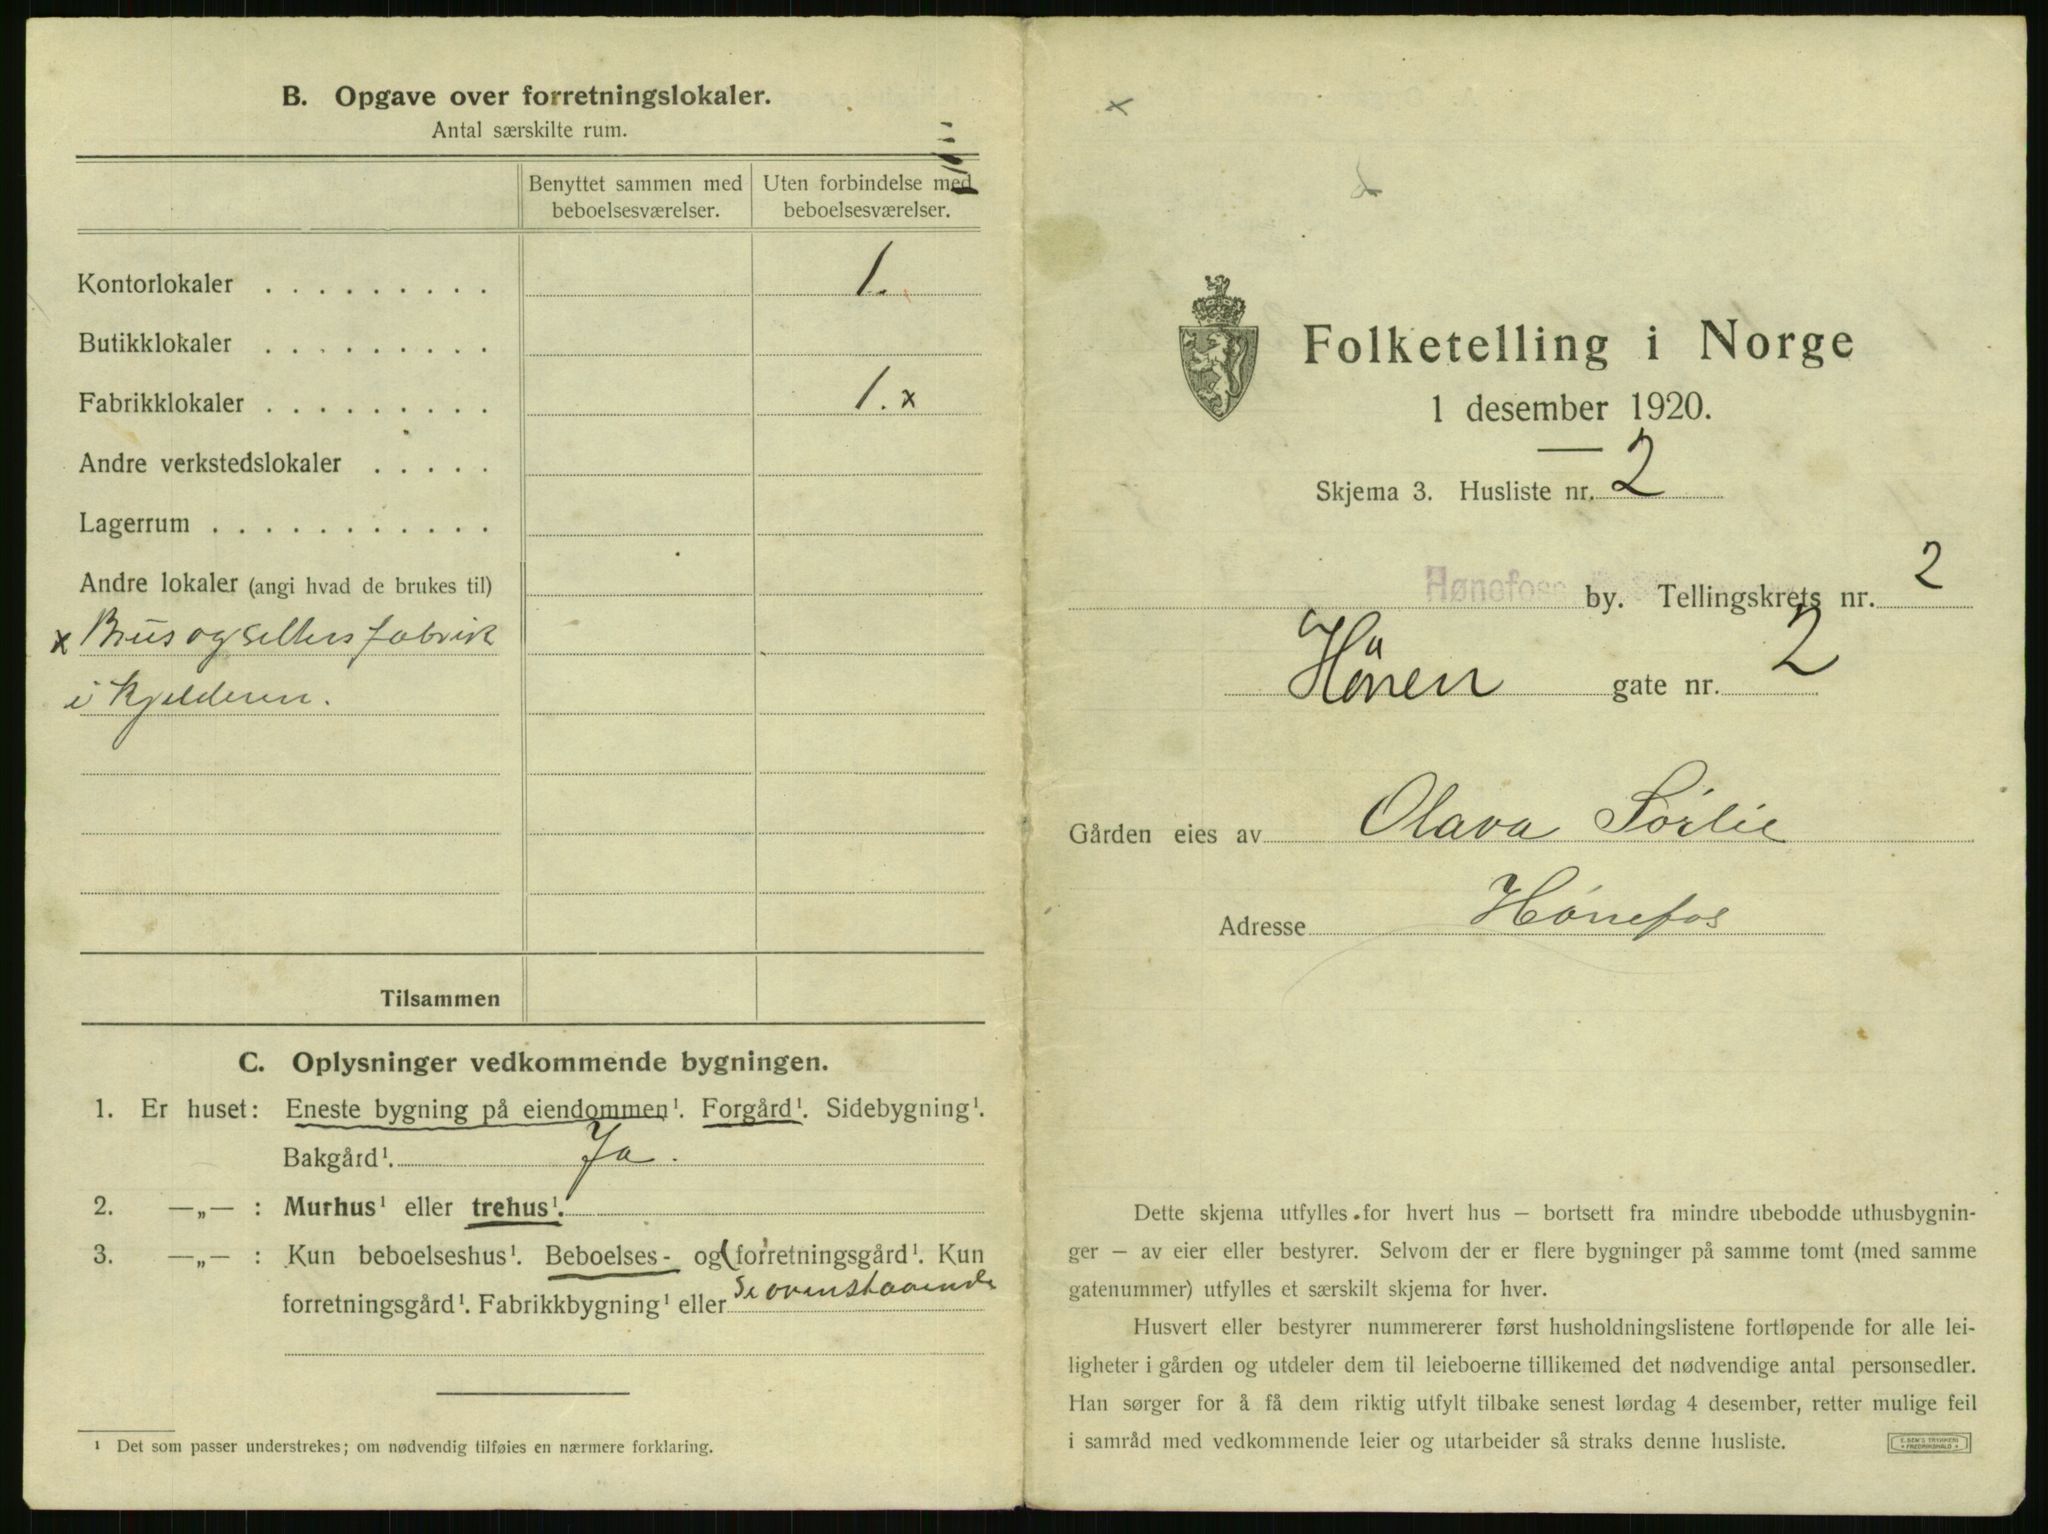 B. Opgave over forretningslokaler.
Antal særskilte rum.
Benyttet sammen med
beboelsesværelser.
Uten forbindelse med
beboelsesværelser.
Kontorlokaler . . . . . . . . . 1.
Butikklokaler . . . . . . . . .
Fabrikklokaler . . . . . . . . . 1. x
Andre verkstedslokaler . . . . .
Lagerrum . . . . . . . . . . . .
Andre lokaler (angi hvad de brukes til)
x Brus og selters fabrik
i kjelderen.
Tilsammen
C. Oplysninger vedkommende bygningen.
1. Er huset: Eneste bygning på eiendommen¹. Forgård¹. Sidebygning¹.
Bakgård¹. Ja.
2. —„— : Murhus¹ eller trehus¹.
3. —„— : Kun beboelseshus¹. Beboelses- og (forretningsgård¹. Kun
forretningsgård¹. Fabrikkbygning¹ eller Se ovenstaaende
¹ Det som passer understrekes; om nødvendig tilføies en nærmere forklaring.
x
Folketelling i Norge
1 desember 1920.
Skjema 3. Husliste nr. 2
Hønefoss by. Tellingskrets nr. 2
Hönen gate nr. 2
Gården eies av Olava Sörlie
Adresse Hönefos
Dette skjema utfylles for hvert hus – bortsett fra mindre ubebodde uthusbygnin-
ger – av eier eller bestyrer. Selvom der er flere bygninger på samme tomt (med samme
gatenummer) utfylles et særskilt skjema for hver.
Husvert eller bestyrer nummererer først husholdningslistene fortløpende for alle lei-
ligheter i gården og utdeler dem til leieboerne tillikemed det nødvendige antal personsedler.
Han sørger for å få dem riktig utfylt tilbake senest lørdag 4 desember, retter mulige feil
i samråd med vedkommende leier og utarbeider så straks denne husliste.
E. SEM'S TRYKKERI
FREDRIKSHALD